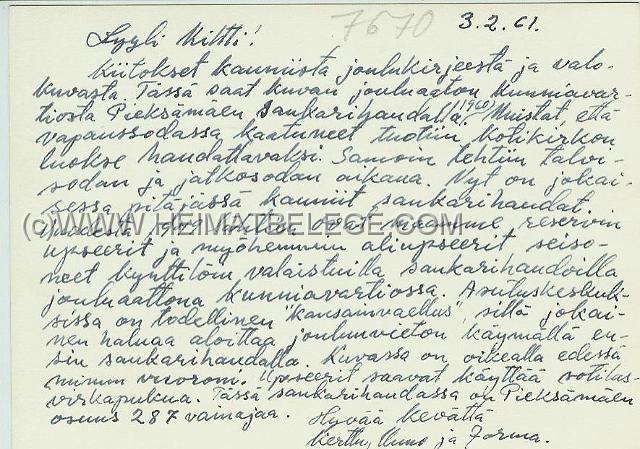 7670
3.2.61.
Lyyli Kiltti!
Kiitokset kauniista joulukirjeestä ja valo-
kuvasta. Tässä saat kuvan jouluaaton kunniavar-
tiosta Pieksämäen sankarihaudalla 1960. Muistat, että
vapaussodassa kaatuneet tuotiin kotikirkon
luokse haudattavaksi. Samoin tehtiin talvi-
sodan ja jatkosodan aikana. Nyt on jokai-
sessa pitäjässä kauniit sankarihaudat.
(c)WWW.HEIMATBELEGE.COM
reservin
upseerit ja myöhemmin aliupseerit seiso-
neet kynttilöin valaistuilla sankarihaudoilla
jouluaattona kunniavartiossa. Asutuskeskuk-
sissa on todellinen "kansanvaellus", sillä jokai-
nen haluaa aloittaa joulunvieton käymällä en-
sin sankarihaudalla. Kuvassa on oikealla edessä
minun vuoroni. Upseerit saavat käyttää sotilas-
virkapukua. Tässä sankarihaudassa on Pieksämäen
osuus 287 vainajaa.
Hyvää kevättä
Kerttu, Unno ja Jorma.